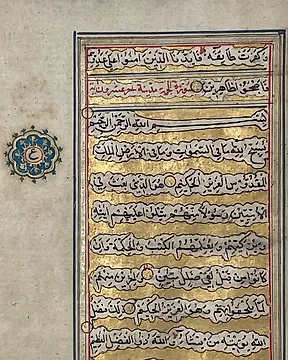 وكفرت طائفة فأيدنا الذين آمنوا على عدوهم
فأصبحوا ظاهرين سورة الجمعة مدنية
بسم الله الرحمن الرحيم
يسبح لله ما في السموات وما في الأرض الملك
القدوس العزيز الحكيم هو الذي بعث في
الأميين رسولا منهم يتلوا عليهم آياته
ويزكيهم ويعلمهم الكتاب والحكمة وإن
كانوا من قبل لفي ضلال مبين وآخرين منهم
لما يلحقوا بهم وهو العزيز الحكيم ذلك فضل
الله يؤتيه من يشاء والله ذو الفضل العظيم